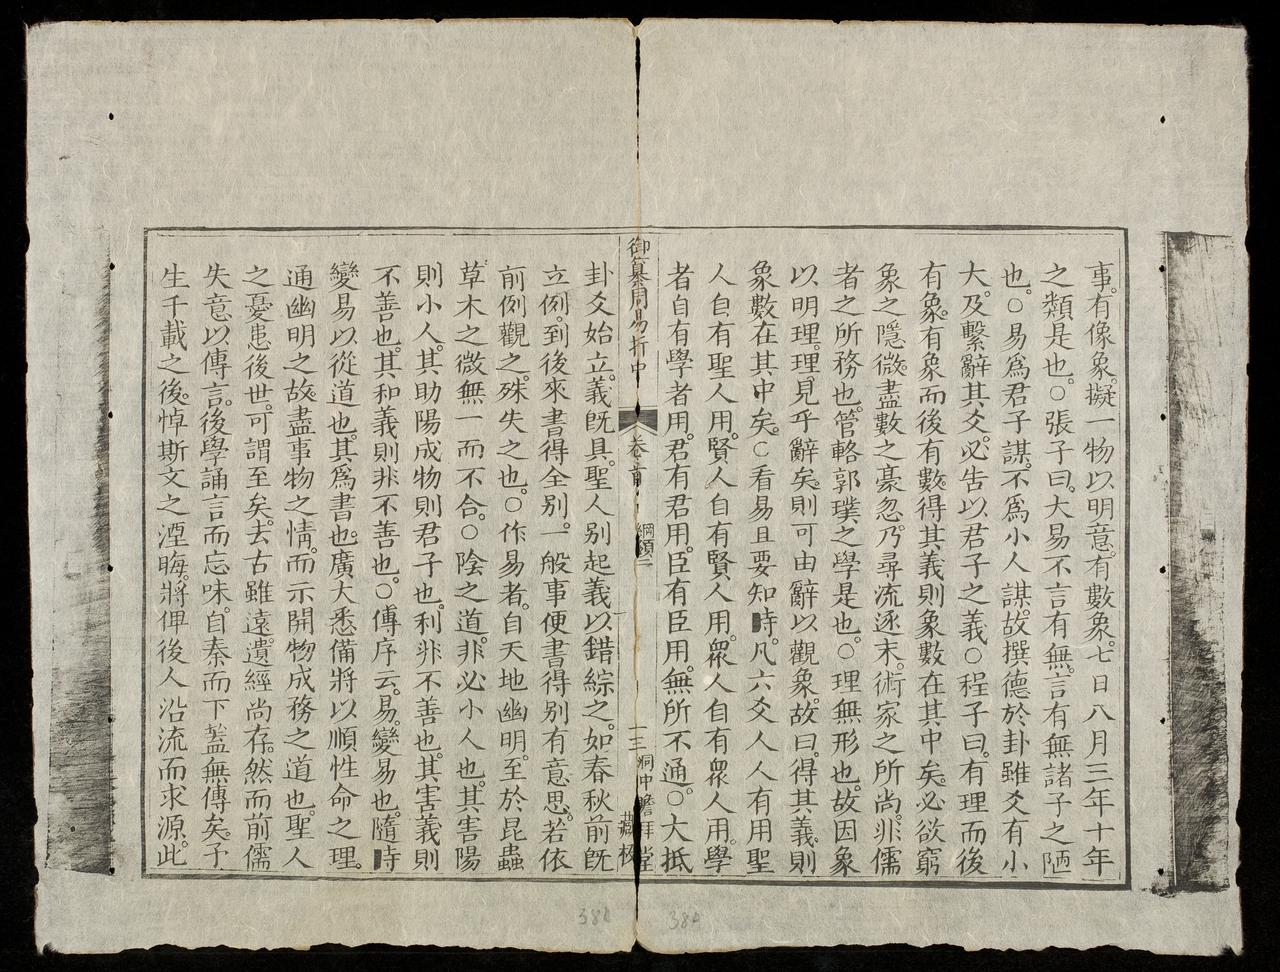 事。有像象。擬一物以明意。有數象。七日八月三年十年
之類是也。○張子曰。大易不言有無。言有無諸子之陋
也。○易爲君子謀。不爲小人謀。故撰德於卦雖爻有小
大。及繫辭其爻。必告以君子之義○程子曰。有理而後
有象。有象而後有數。得其義則象數在其中矣。必欲窮
象之隱微。盡數之豪忽。乃尋流逐末。術家之所尚。非儒
者之所務也。管輅郭璞之學是也。○理無形也。故因象
以明理。理見乎辭矣。則可由辭以觀象。故曰。得其義。則
象數在其中矣。○看易且要知時。凡六爻人人有用聖
人自有聖人用。賢人自有賢人用。衆人自有衆人用。學
者自有學者用。君有君用。臣有臣用。無所不通。○大抵
御纂周易折中
卷首
綱領二
十三
洞中
堂
藏板
卦爻始立。義旣具。聖人別起義以錯綜之。如春秋前旣
立例。到後來書得全別。一般事便書得別有意思。若依
前例觀之。殊失之也。○作易者。自天地幽明。至於昆蟲
草木之微無一而不合。○陰之道。非必小人也。其害陽
則小人。其助陽成物則君子也。利非不善也。其害義則
不善也。其和義則非不善也。○傳序云。易。變易也。隨時
變易以從道也。其爲書也。廣大悉備將以順性命之理。
通幽明之故。盡事物之情。而示開物成務之道也。聖人
之憂患後世。可謂至矣。去古雖遠。遺經尚存。然而前儒
失意以傳言。後學誦言而忘味。自秦而下蓋無傳矣。予
生千載之後。悼斯文之湮晦。將俾後人沿流而求源。此
384
384